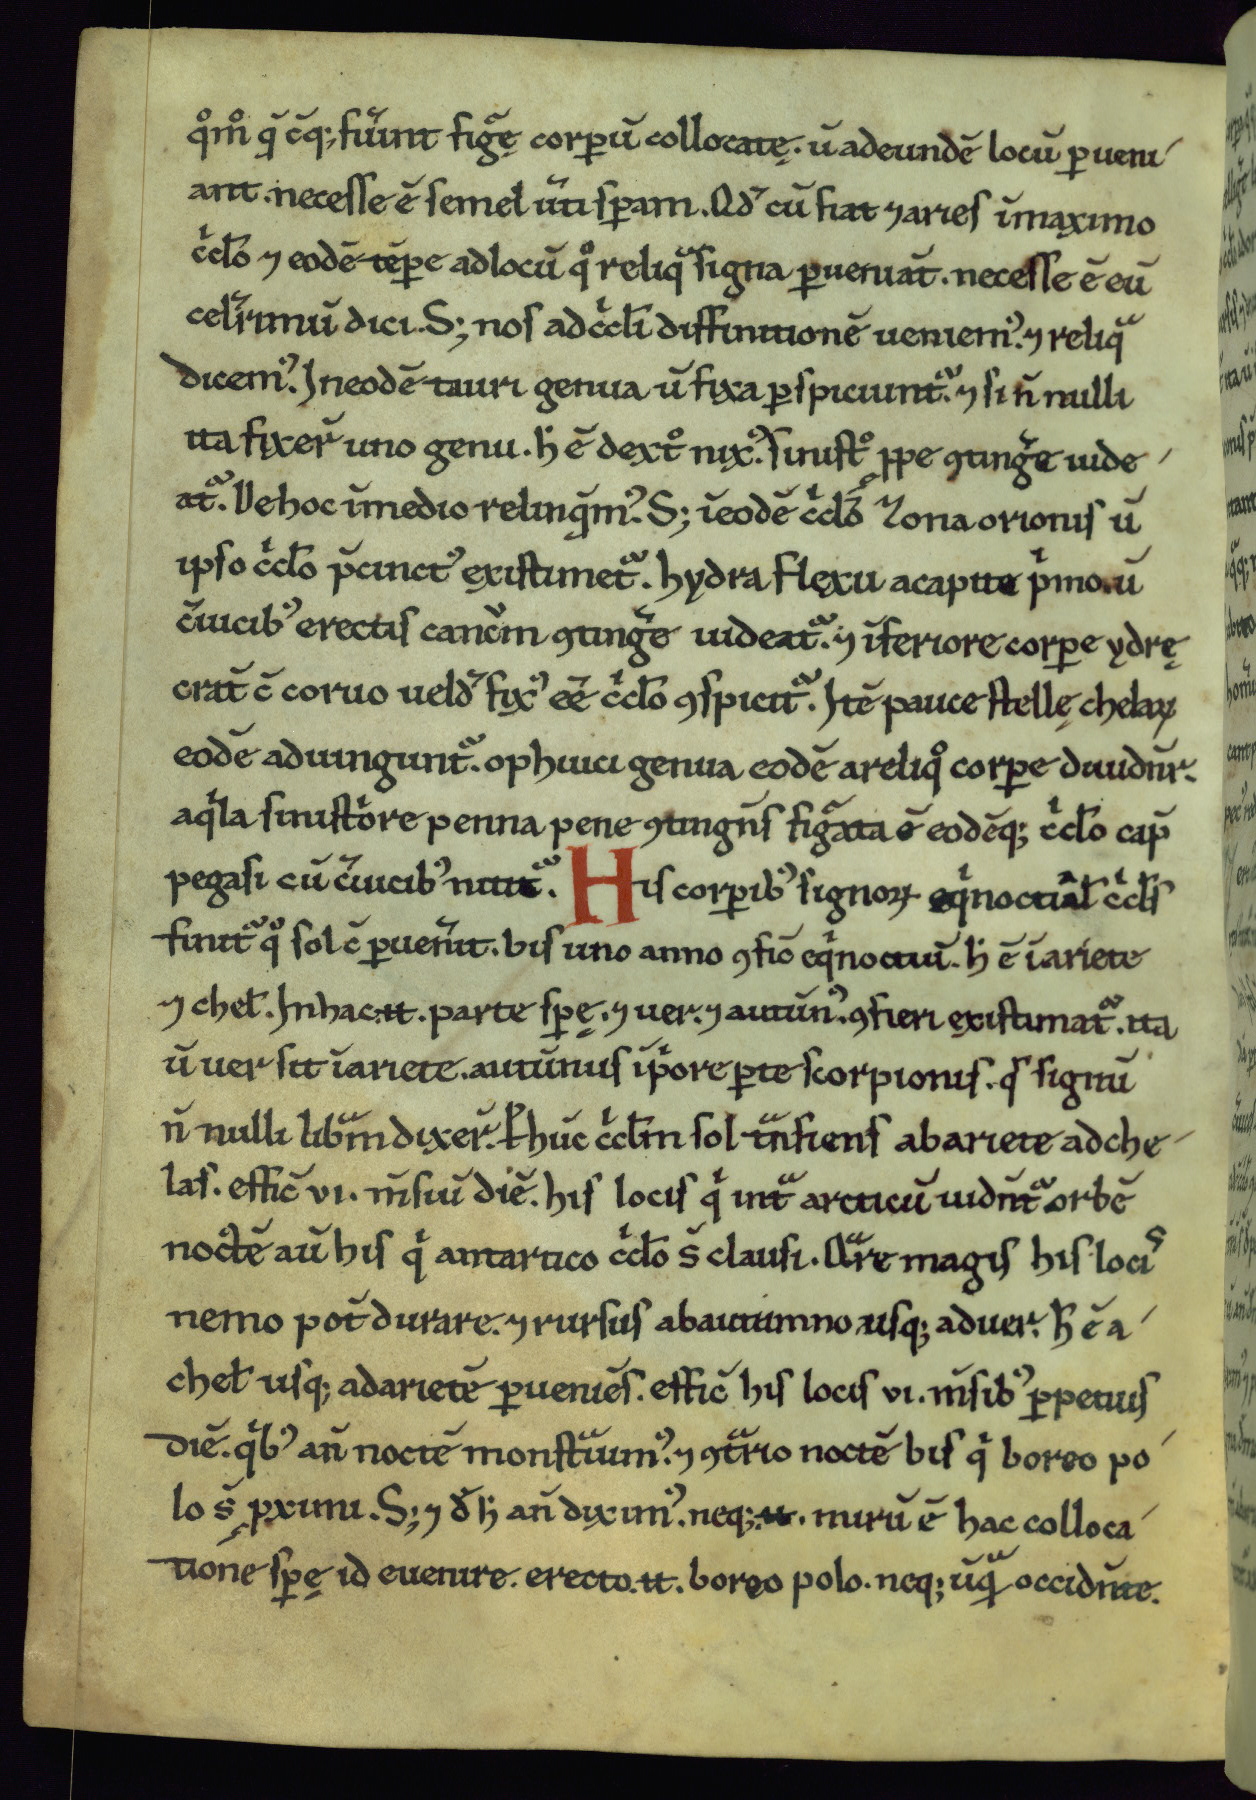 q̊m̊ q̄ c̄q; fu̓int figᷓę corꝑū collocatę. ū adeundē locū ꝑueni
ant. necesse ē semel ūti sꝑam. Qd̓ cū fiat ⁊ aries īmaximo
cͥclo ⁊ eodē tēꝑe adlocū qͦ reliqᷓ signa ꝑueniāt. necesse ē eū
cel̓rimū dici. S; nos adcͥcli diffinitionē ueniemꝰ. ⁊ reliqᷓ
dicemꝰ. Ineodē tauri genua ū fixa ꝑspiciuntᷓ. ⁊ si n̄ nulli
ita fixer̄ uno genu. h̄ ē dext̊ nixꝰ. sinist̊ ꝓpe ꝯting̓e uide
atᷓ. De hoc īmedio relinqͥmꝰ. S; īeodē cͥclo Zona orionis ū
ipso cͥclo p̄cinctꝰ existimetᷓ. hydra flexu acapite pͥmo. ū
c̓uicibꝰ erectis canc̓m ꝯting̓e uideatᷓ. ⁊ īferiore corꝑe ydrę
crat̄ c̄ coruo ueld̓ fixꝰ eē cͥclo ꝯspicitᷓ. Itē pauce stellę chelaꝝ
eodē adiungunttᷓ. ophiuci genua eodē areliqͦ corꝑe diuidn̄r.
aqͥla sinistͥore penna pene ꝯtingn̄s figᷓata ē eodēq; cͥclo cap̄
pegasi cū c̓uicibꝰ nititᷓ. His corꝑibꝰ signoꝝ eqͥnoctial̄ cͥcl̄s
finitᷓ qͦ sol c̄ ꝑuen̓it. bis uno anno ꝯfic̄ eqͥnoctiū. h̄ ē īariete
⁊ chel̄. Inhac.tt. parte sꝑę. ⁊ uer. ⁊ autūnꝰ. ꝯfieri existimatᷓ. ita
ū uer sit īariete. autūnus īpͥore ꝑte scorpionis. q̄ signū
n̄ nulli libᷓm dixer̄. Ꝑhūc cͥclm̄ sol tᷓnsiens abariete adche
las. effic̄ vi. m̄siū diē. his locis qͥ intᷓ arcticū uidn̄tᷓ orbē
noctē aū his qͥ antartico cͥclo s̄ clausi. Qᷓre magis his locis
nemo pot̄ durare. ⁊ rursus abautumno usq; aduer. h̄ ē a
chel̄ usq; adarietē ꝑueniēs. effic̄ his locis vi. m̄sibꝰ ꝑpetuis
diē. qͥbꝰ an̄ noctē monstᷓuimꝰ. ⁊ ꝯtᷓrio noctē bis qͥ boreo po
lo s̄ ꝓximi. S; ⁊ d̄ h̄ an̄ diximꝰ. neq; .tt. mirū ē hac colloca
tione sꝑę id euenire. erecto.tt. boreo polo. neq; ūqᷓ occidn̄te.